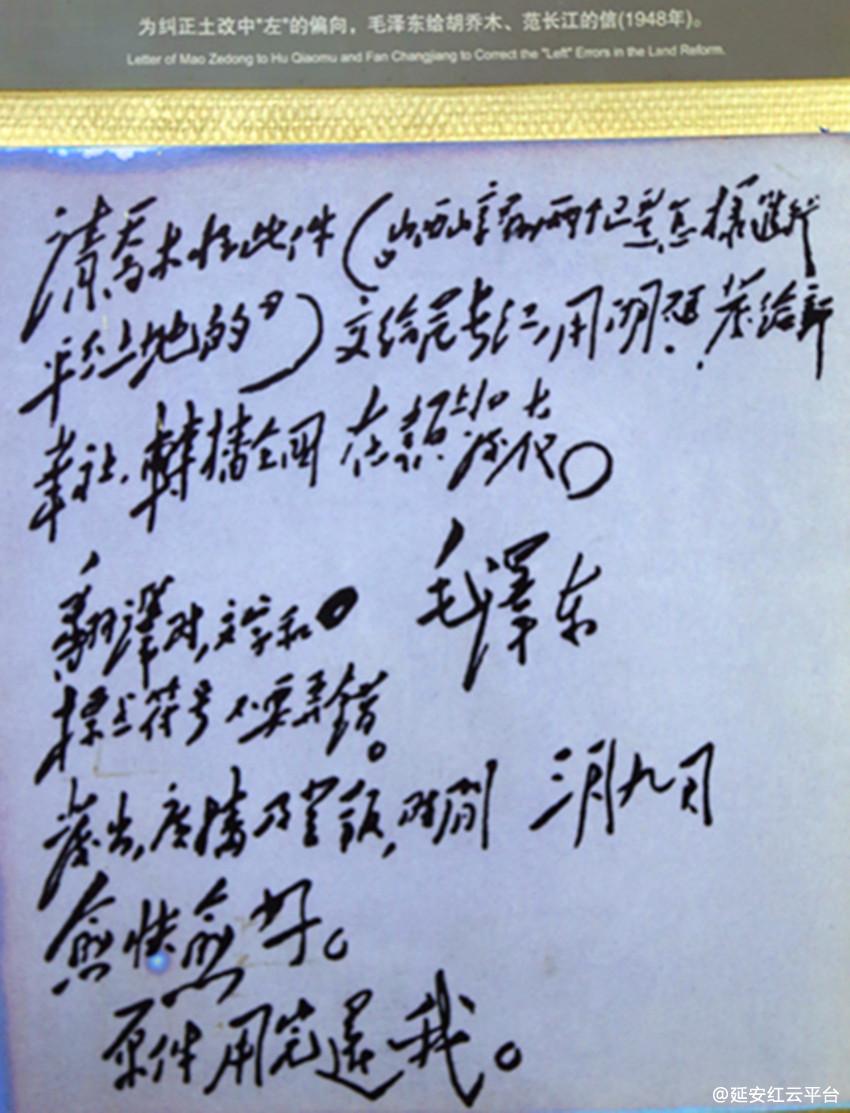 为纠正土改中"左"的偏向，毛泽东给胡乔木、范长江的信(1948年)。
Letter of Mao Zedong to Hu Qiaomu and Fan Changjiang to Correct the "Left" Errors in the Land Reform.
請喬木将此件（山西崞县是怎樣進行
平分土地的）交给范長江，用明碼發给新
華社，轉播全国
翻譯时，文字和 毛澤东
標点符号不要弄錯。
發出，广播及登報，时间 三月九日
愈快愈好。
原件用完還我。
@延安红云平台